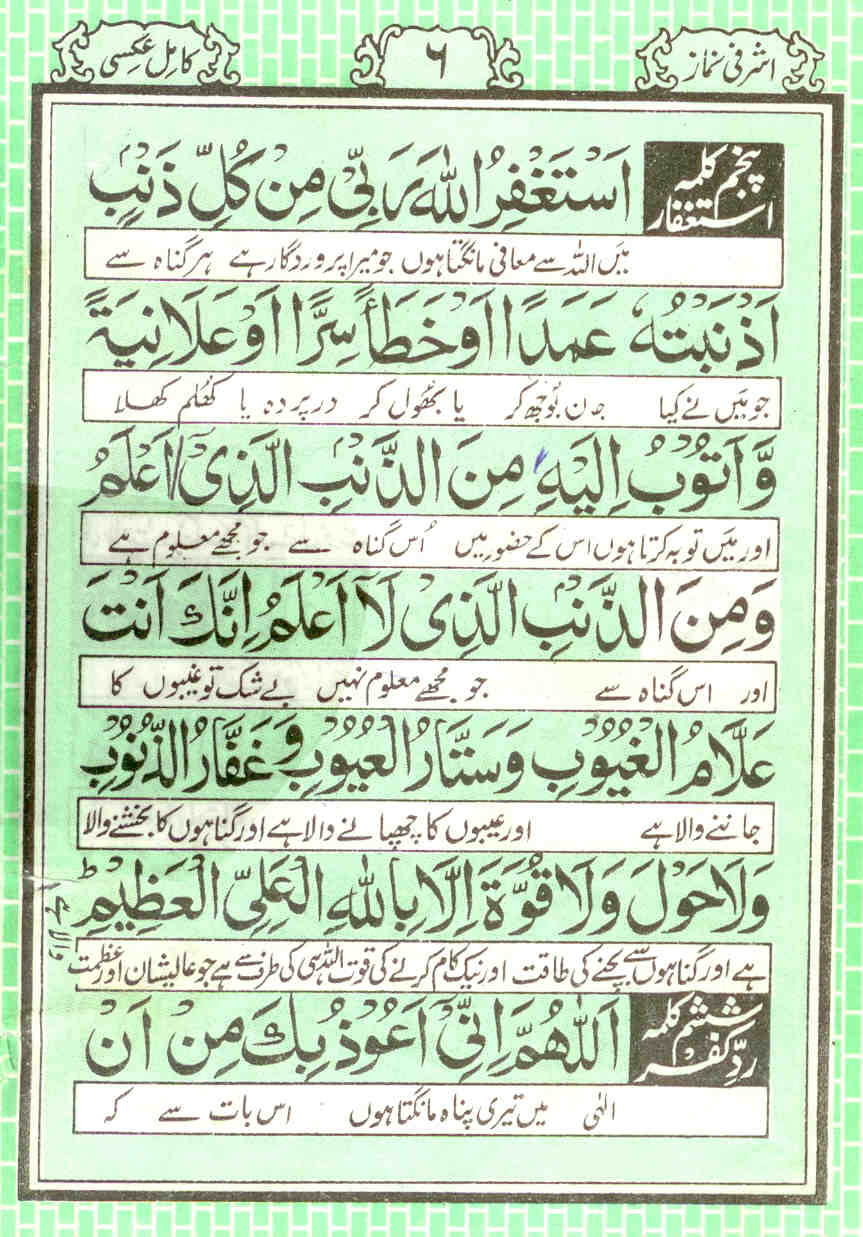 اشرفی نماز
۶
کامل عکسی
پنجم کلمہ
استغفار
اَسْتَغْفِرُ اللّٰهَ رَبِّیْ مِنْ كُلِّ ذَنْۢبٍ
میں اللہ سے معافی مانگتا ہوں جو میرا پروردگار ہے ہر گناہ سے
اَذْنَبْتُهٗ عَمَدًا اَوْ خَطَأً سِرًّا اَوْ عَلَانِیَةً
جو میں نے کیا جان بوجھ کر یا بھُول کر درپردہ یا کھُلم کھلا
وَّاَتُوْبُ اِلَیْهِ مِنَ الذَّنْۢبِ الَّذِیْٓ اَعْلَمُ
اور میں توبہ کرتا ہوں اس کے حضور میں اُس گناہ سے جو مجھے معلوم ہے
وَمِنَ الذَّنْۢبِ الَّذِیْ لَآ اَعْلَمُ اِنَّكَ اَنْتَ
اور اس گناہ سے جو مجھے معلوم نہیں بےشک تو غیبوں کا
عَلَّامُ الْغُیُوْبِ وَسَتَّارُ الْعُیُوْبِ وَ غَفَّارُ الذُّنُوْبِ
جاننے والا ہے اور عیبوں کا چھپانے والا ہے اور گناہوں کا بخشنے والا
وَلَا حَوْلَ وَلَا قُوَّةَ اِلَّا بِاللّٰهِ الْعَلِیِّ الْعَظِیْمِ ؕ
ہے اور گناہوں سے بچنے کی طاقت اور نیک کام کرنے کی قوت اللہ ہی کی طرف سے ہے جو عالیشان اور عظمت
والا ہے
ششم کلمہ
ردِّ کفر
اَللّٰهُمَّ اِنِّیْٓ اَعُوْذُ بِكَ مِنْ اَنْ
الٰہی میں تیری پناہ مانگتا ہوں اس بات سے کہ